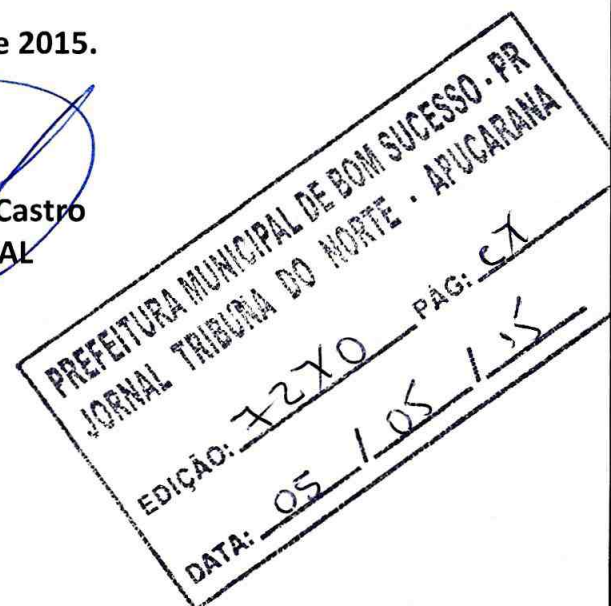 e 2015.
Castro
AL
PREFEITURA MUNICIPAL DE BOM SUCESSO - PR
JORNAL TRIBUNA DO NORTE - APUCARANA
EDIÇÃO: 7270 PÁG: C7
DATA: 05 / 05 / 15